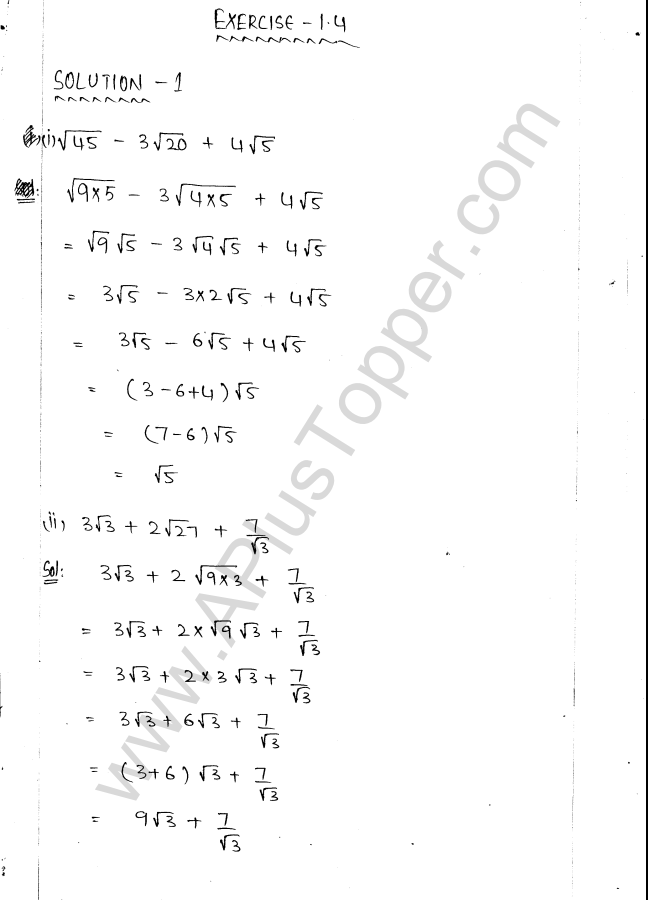 EXERCISE - 1.4
SOLUTION - 1
(i) √45 - 3√20 + 4√5
√9×5 - 3√4×5 + 4√5
= √9 √5 - 3√4√5 + 4√5
= 3√5 - 3×2√5 + 4√5
= 3√5 - 6√5 + 4√5
= (3-6+4)√5
= (7-6)√5
= √5
(ii) 3√3 + 2√27 + 7/√3
Sol: 3√3 + 2√9×3 + 7/√3
= 3√3 + 2×√9√3 + 7/√3
= 3√3 + 2×3√3 + 7/√3
= 3√3 + 6√3 + 7/√3
= (3+6)√3 + 7/√3
= 9√3 + 7/√3
www.APlusTopper.com